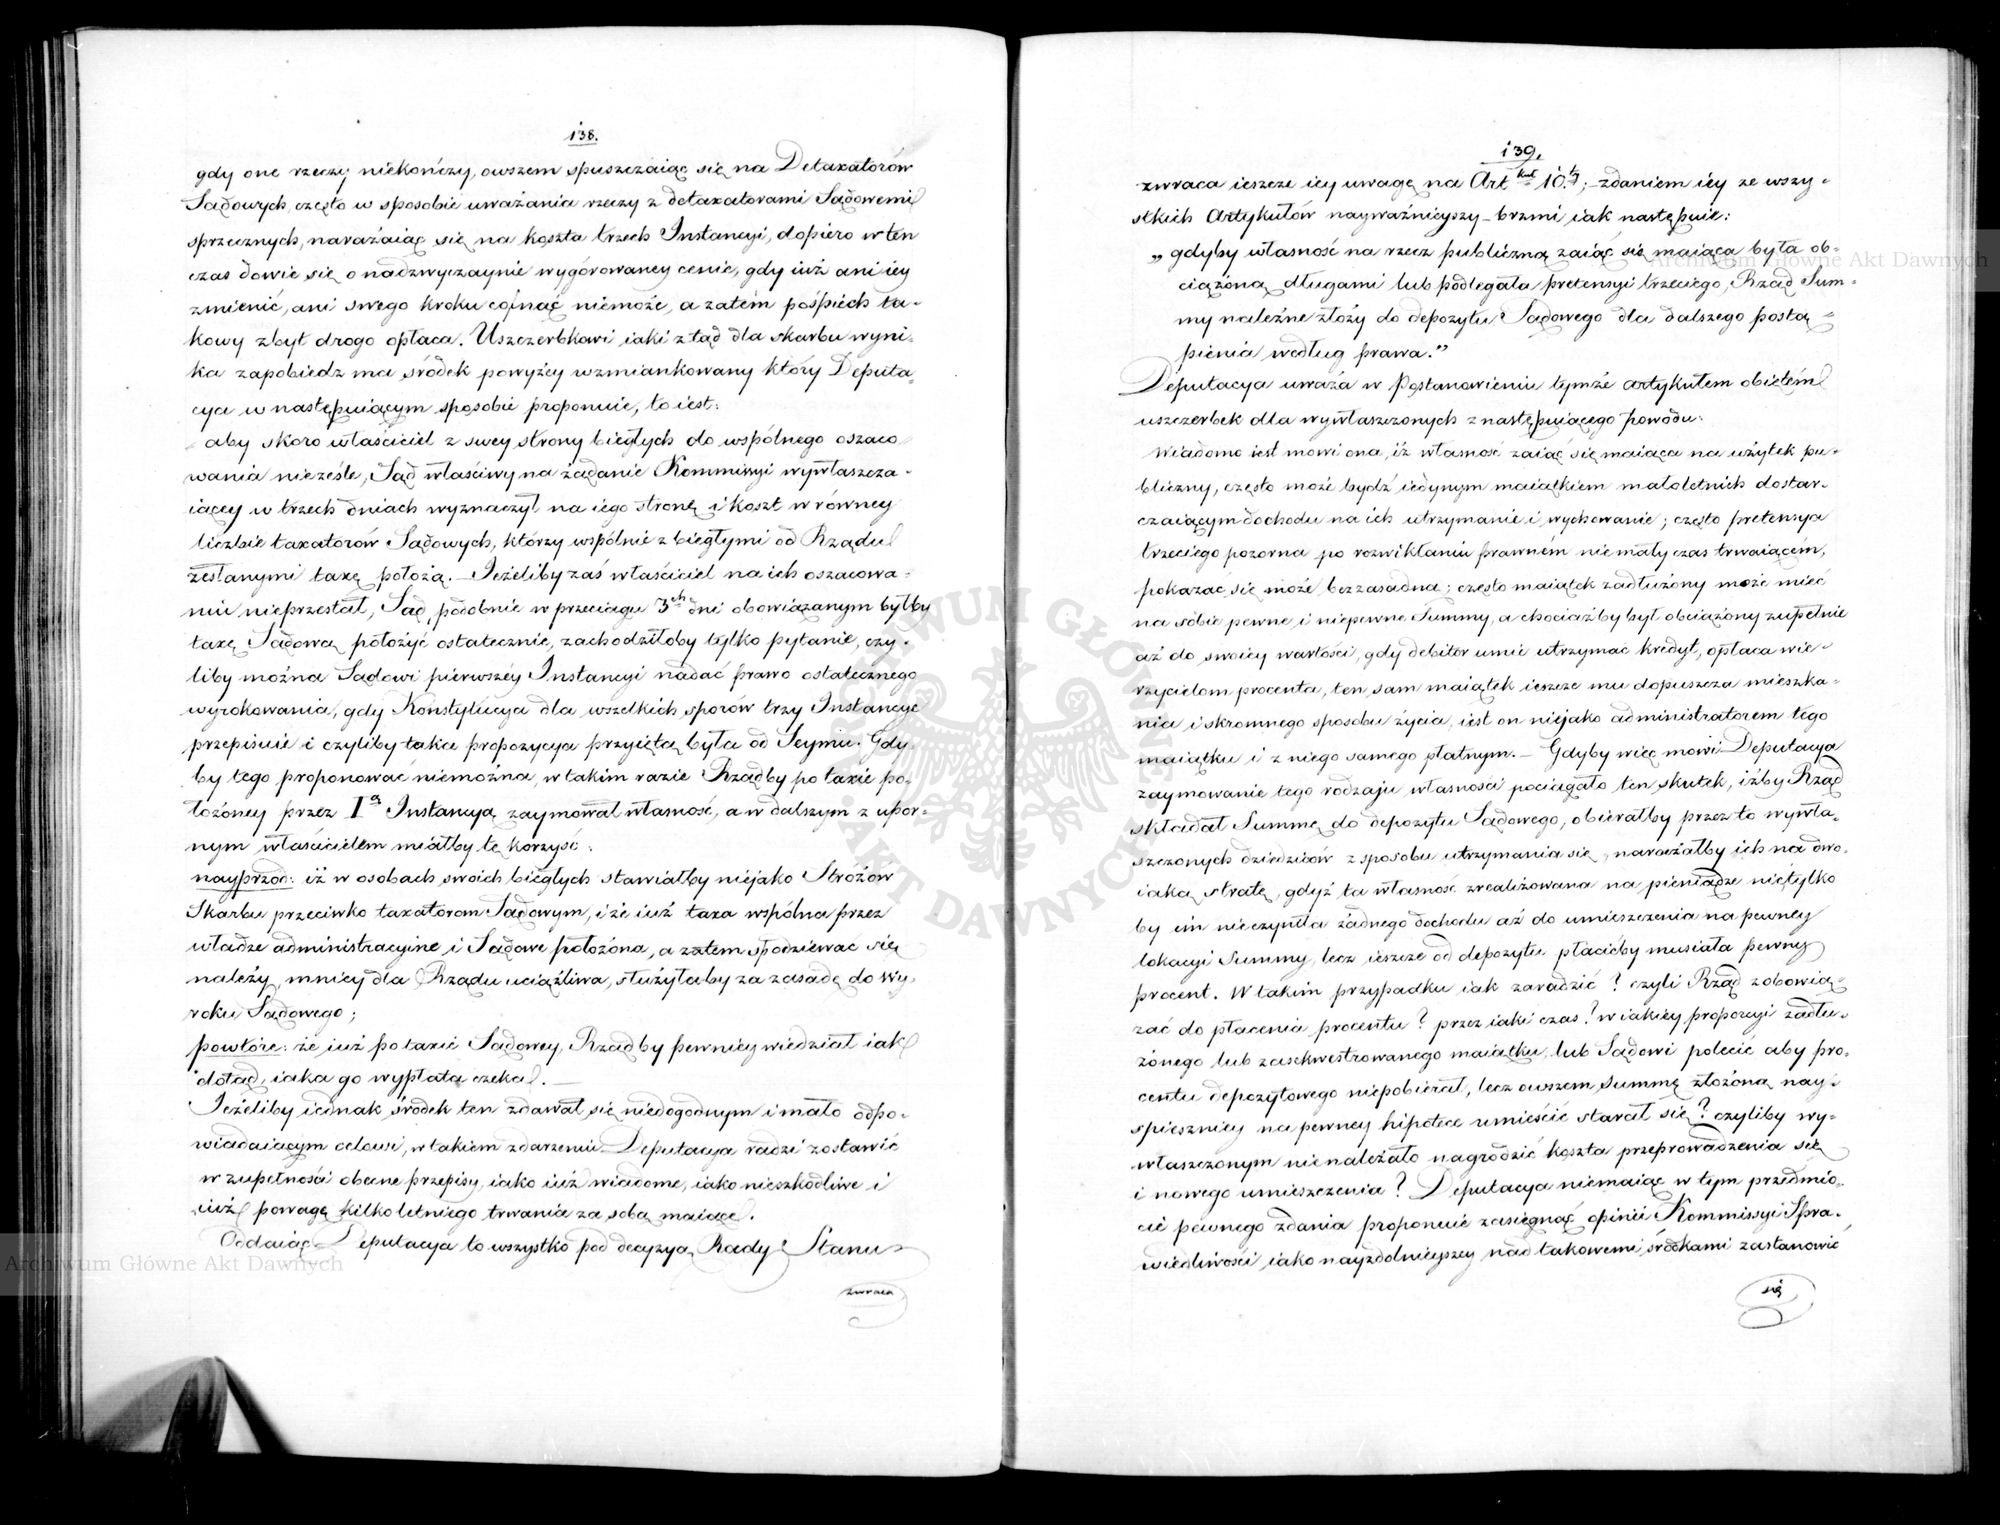 138.
gdy one rzeczy niekończy, owszem spuszczaiąc się na Detaxatorów
Sądowych, często w sposobie uważania rzeczy z detaxatorami Sądowemi
sprzecznych, narażaiąc się na koszta trzech Instancyi, dopiero w ten
czas dowie się o nadzwyczaynie wygórowaney cenie, gdy iuż ani iey
zmienić, ani swego kroku cofnąć niemoże, a zatém pośpiech ta-
kowy zbyt drogo opłaca. Uszczerbkowi iaki ztąd dla skarbu wyni-
ka zapobiedz ma środek powyżey wzmiankowany który Deputa-
cya w następuiącym sposobie proponuie, to iest:
aby skoro właściciel z swey strony biegłych do wspólnego oszaco
wania nieześle, Sąd właściwy na żądanie Kommissyi wywłaszcza-
iącey w trzech dniach wyznaczył na iego stronę i koszt w równey
liczbie taxatorów Sądowych, którzy wspólnie z biegłymi od Rządu
zesłanymi taxę położą. — Jeżeliby zaś właściciel na ich oszacowa-
niu nieprzestał, Sąd, podobnie w przeciągu 3ch dni obowiązanym byłby
taxę Sądową położyć ostatecznie, zachodziłoby tylko pytanie, czy-
liby można Sądowi pierwszéy Instancyi nadać prawo ostatecznego
wyrokowania, gdy Konstytucya dla wszelkich sporów trzy Instancye
przepisuie i czyliby taka propozycya przyięta była od Seymu. Gdy-
by tego proponować niemożna, w takim razie Rządby po taxie po-
łożoney przez Ią Instancyą zaymował własność, a w dalszym z upor-
nym właścicielem miałby tę korzyść:
nayprzód: iż w osobach swoich biegłych stawiałby niejako Stróżów
Skarbu przeciwko taxatorom Sądowym, i że iuż taxa wspólna przez
władze administracyine i Sądowe położona, a zatem spodziewać się
należy, mniey dla Rządu uciążliwa, służyłaby za zasadę do Wy-
roku Sądowego;
powtóre: że iuż po taxie Sądowey, Rządby pewniey wiedział iak
dotąd, iaka go wypłata czeka. —
Jeżeliby iednak środek ten zdawał się niedogodnym i mało odpo-
wiadaiącym celowi, w takiem zdarzeniu Deputacya radzi zostawić
w zupełności obecne przepisy, iako iuż wiadome, iako nieszkodliwe i
iuż powagę kilkoletniego trwania za sobą maiące.
Oddaiąc Deputacya to wszystko pod decyzyą Rady Stanu
zwraca
139.
zwraca ieszcze iey uwagę na Artkuł 10ty; zdaniem iey ze wszy-
stkich Artykułów nayważnieyszy — brzmi iak następuie:
„gdyby własność na rzecz publiczną zaiąć się maiąca była ob-
ciążoną długami lub podlegała pretensyi trzeciego, Rząd Sum-
my należne złoży do depozytu Sądowego dla dalszego postą-
pienia według prawa."
Deputacya uważa w Postanowieniu tymże artykułem obiętém
uszczerbek dla wywłaszczonych z następuiącego powodu:
Wiadomo iest mówi ona, iż własność zaiąć się maiąca na użytek pu-
bliczny, często może bydź iedynym maiątkiem małoletnich dostar-
czaiącym dochodu na ich utrzymanie i wychowanie; często pretensya
trzeciego pozorna po rozwikłaniu prawném niemały czas trwaiącém,
pokazać się może bezzasadna; często maiątek zadłużony może mieć
na sobie pewne i niepewne Summy, a chociażby był obciążony zupełnie
aż do swoiey wartości, gdy debitor umie utrzymać kredyt, opłaca wie-
rzycielom procenta, ten sam maiątek ieszcze mu dopuszcza mieszka-
nia i skromnego sposobu życia, iest on niejako administratorem tego
maiątku i z niego samego płatnym. — Gdyby więc mówi Deputacya
zaymowanie tego rodzaju własności pociągało ten skutek, iżby Rząd
składał Summę do depozytu Sądowego, obierałby przez to wywła-
szczonych dziedziców z sposobu utrzymania się, narażałby ich na dwo-
iaką stratę, gdyż ta własność zrealizowana na pieniądze nietylko
by im nieczyniła żadnego dochodu aż do umieszczenia na pewney
lokacyi Summy, lecz ieszcze od depozytu płacićby musiała pewny
procent. W takim przypadku iak zaradzić? czyli Rząd zobowią-
zać do płacenia procentu? przez iaki czas? w iakiey proporcyi zadłu-
żonego lub zasekwestrowanego maiątku, lub Sądowi polecić aby pro-
centu depozytowego niepobierał, lecz owszem summę złożoną nay-
spieszniey na pewney hipotece umieścić starał się? czyliby wy-
właszczonym nienależało nagrodzić koszta przeprowadzenia się
i nowego umieszczenia? Deputacya niemaiąc w tym przedmio-
cie pewnego zdania proponuie zasięgnąć opinii Kommissyi Spra-
wiedliwości iako nayzdolnieyszey nad takowemi środkami zastanowić
się
Archiwum Główne Akt Dawnych
Archiwum Główne Akt Dawnych
ARCHIWUM GŁÓWNE AKT DAWNYCH